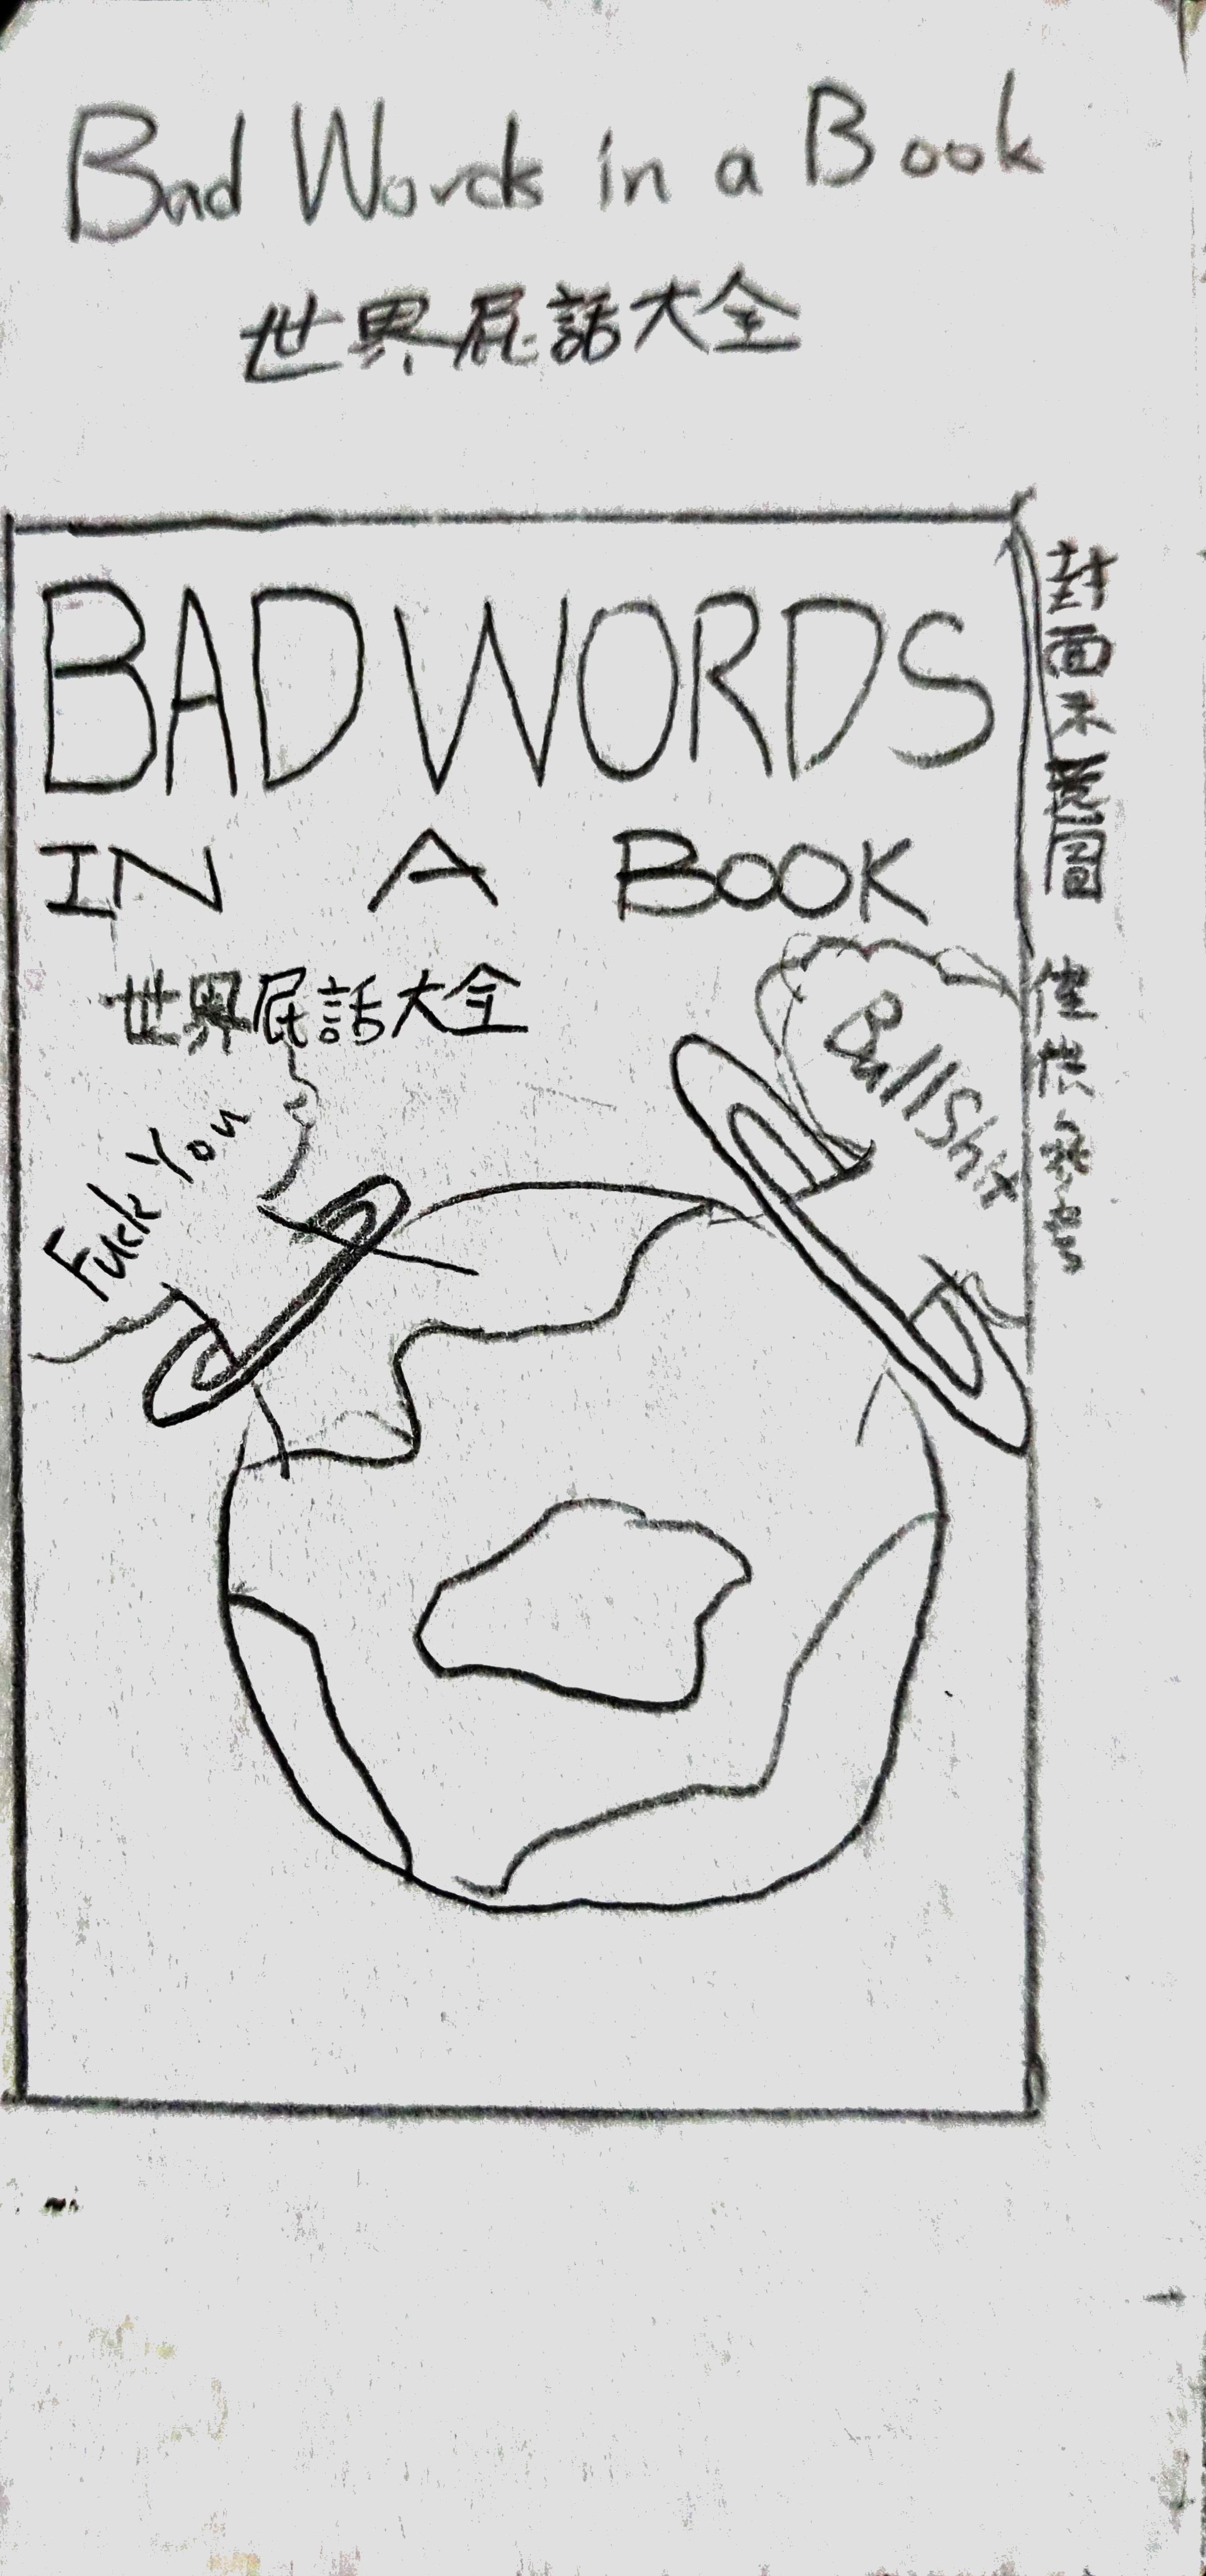 Bad Words in a Book
世界屁話大全
BAD WORDS
IN A BOOK
世界屁話大全
Fuck You
BullShit
封面示意圖
僅供參考